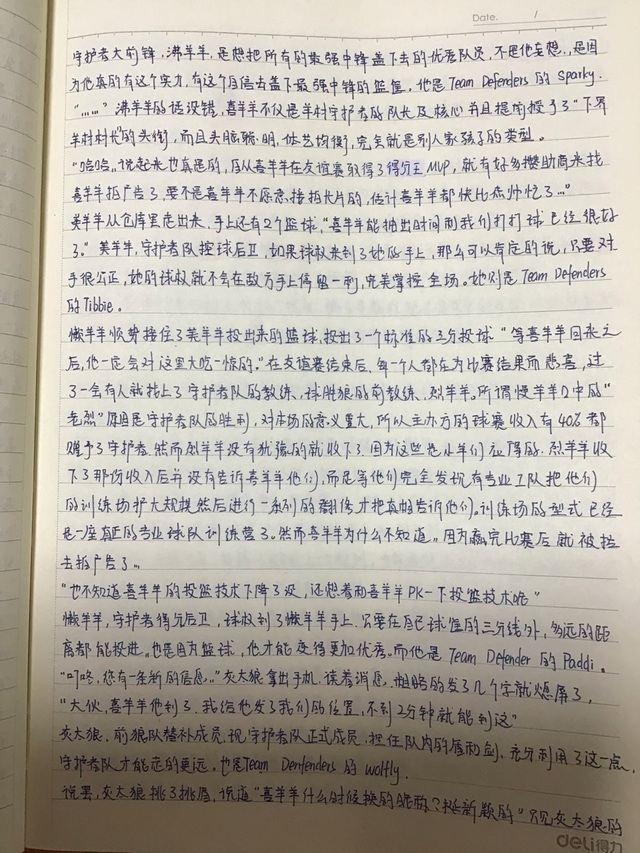 Date. /
守护者大前锋，沸羊羊，是想把所有的最强中锋盖下去的优秀队员，不是他妄想，是因
为他真的有这个实力，有这个自信去盖下最强中锋的篮筐，他是Team Defenders的Sparky.
"……"沸羊羊的话没错，喜羊羊不仅是羊村守护者的队长及核心并且提前授予了"下界
羊村村长"的头衔，而且头脑聪明，体艺均衡，完全就是别人家孩子的类型。
"哈哈，说起来也真是的，自从喜羊羊在友谊赛取得了得分王MVP，就有好多赞助商来找
喜羊羊拍广告了，要不是喜羊羊不愿意接拍大片的，估计喜羊羊都快比帅忙了…"
美羊羊从仓库里走出来，手上还有2个篮球，"喜羊羊能抽出时间和我们打打球已经很好
了。"美羊羊，守护者队控球后卫，如果球权来到了她的手上，那么可以肯定的说，只要对
手很公正，她的球权就不会在敌方手上停留一刻，完美掌控全场。她则是Team Defenders
的Tibbie。
懒羊羊顺势接住了美羊羊投出来的篮球，投出了一个标准的三分投球"等喜羊羊回来之
后，他一定会对这里大吃一惊的。"在友谊赛结束后，每一个人都在为比赛结果而悲喜，过
了一会有人就找上了守护者队的教练，球胜狼的前教练，烈羊羊。所谓慢羊羊口中的"
老烈"原因是守护者队的胜利，对市场的意义重大，所以主办方的球赛收入有40%都
赠予了守护者，然而烈羊羊没有犹豫的就收下了，因为这些也小羊们应得的，烈羊羊收
下了那份收入后并没有告诉喜羊羊他们，而是等他们完全发现有专业工队把他们
的训练场扩大规模然后进行一系列的翻修才把真相告诉他们。训练场的型式已经
是一座真正的专业球队训练营了。然而喜羊羊为什么不知道，因为赢完比赛后就被拉
去拍广告了…
"也不知道喜羊羊的投篮技术下降了没，还想着和喜羊羊PK一下投篮技术呢"
懒羊羊，守护者得分后卫，球权到了懒羊羊手上，只要在自己球筐的三分线外，多远的距
离都能投进。也是因为篮球，他才能变得更加优秀。而他是Team Defender的Paddi。
"叮咚，您有一条新的信息。"灰太狼拿出手机，读着消息，粗略的发了几个字就熄屏了，
"大伙，喜羊羊他到了，我给他发了我们的位置，不到2分钟就能到这"
灰太狼，前狼队替补成员，现守护者队正式成员，担任队内的盾和剑，充分利用了这一点，
守护者队才能走的更远，也是Team Denfenders的wolffy.
说罢，灰太狼挑了挑眉，说道"喜羊羊什么时候换的昵称？挺新颖的"只见灰太狼的
deli得力